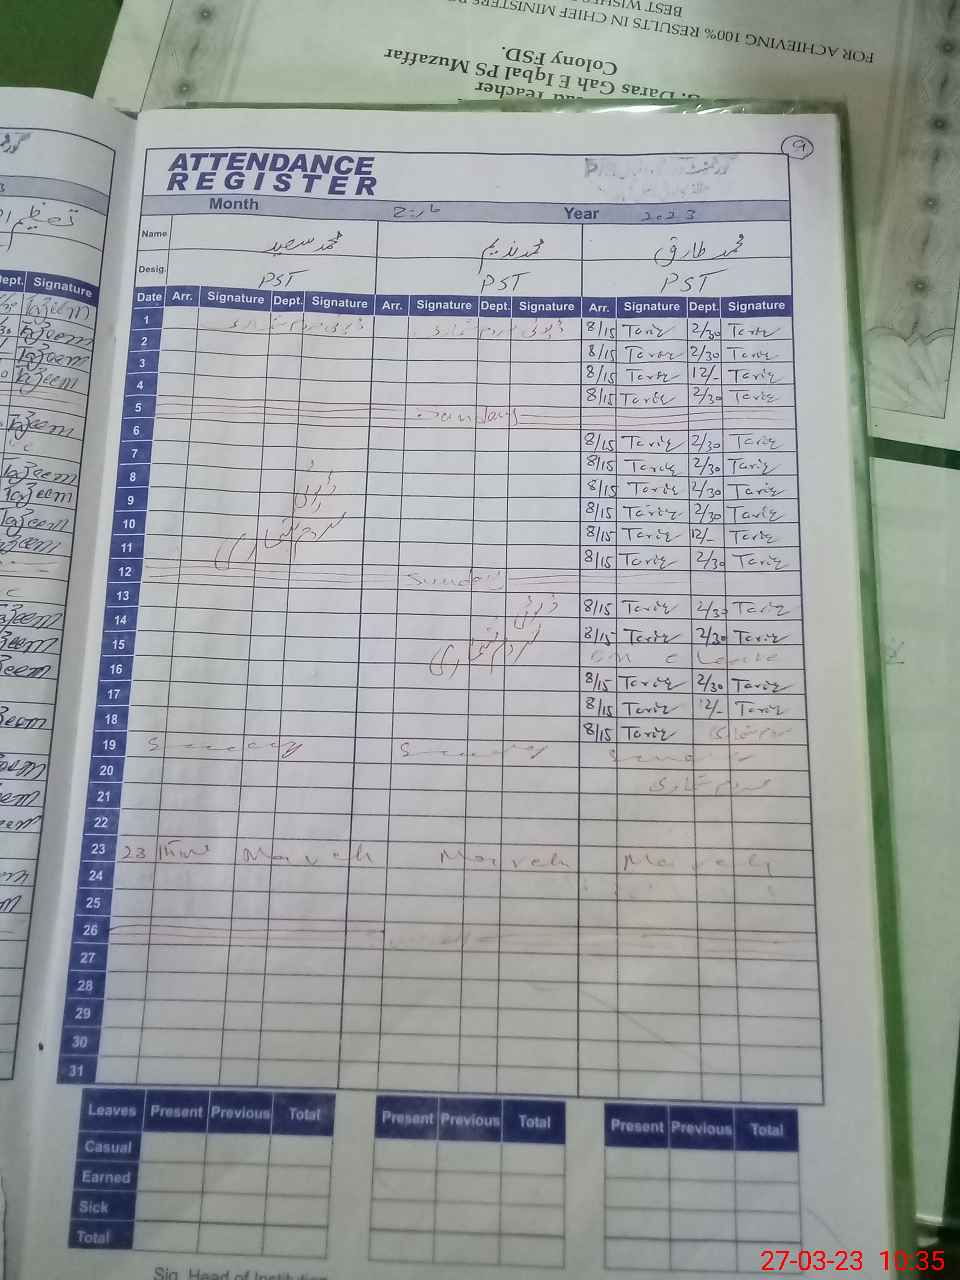 BEST WISHES
FOR ACHIEVING 100% RESULTS IN CHIEF MINISTERS
Colony FSD.
Daras Gah E Iqbal PS Muzaffar
Teacher
9
ATTENDANCE
REGISTER
Month مارچ Year 2023
Name محمد سعید محمد ندیم محمد طارق
Desig. PST PST PST
Dept. Signature
Date Arr. Signature Dept. Signature Arr. Signature Dept. Signature Arr. Signature Dept. Signature
1 ڈیوٹی مردم شماری ڈیوٹی مردم شماری 8/15 Tariq 2/30 Tariq
2 8/15 Tariq 2/30 Tariq
3 8/15 Tariq 12/- Tariq
4 8/15 Tariq 2/30 Tariq
5 Sunday
6 8/15 Tariq 2/30 Tariq
7 8/15 Tariq 2/30 Tariq
8 8/15 Tariq 2/30 Tariq
9 ڈیوٹی 8/15 Tariq 2/30 Tariq
10 مردم شماری 8/15 Tariq 12/- Tariq
11 8/15 Tariq 2/30 Tariq
12 Sunday
13 ڈیوٹی 8/15 Tariq 2/30 Tariq
14 مردم شماری 8/15 Tariq 2/30 Tariq
15 on c leave
16 8/15 Tariq 2/30 Tariq
17 8/15 Tariq 12/- Tariq
18 8/15 Tariq مردم شماری
19 Sunday Sunday Sunday
20 مردم شماری
21
22
23 23 March March March
24
25
26
27
28
29
30
31
Leaves Present Previous Total Present Previous Total Present Previous Total
Casual
Earned
Sick
Total
Sig. Head of Institution
27-03-23 10:35